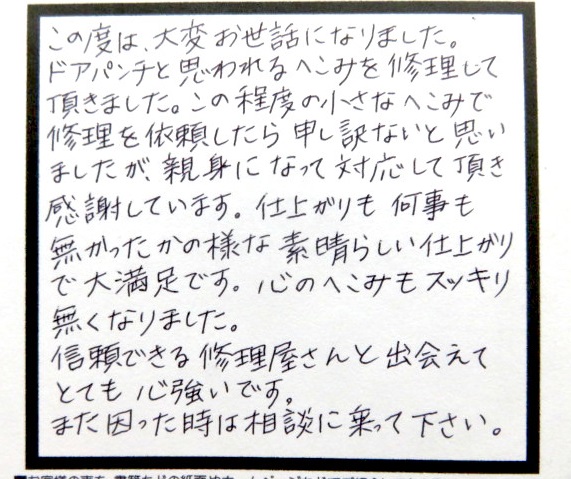 この度は、大変お世話になりました。
ドアパンチと思われるへこみを修理して
頂きました。この程度の小さなへこみで
修理を依頼したら申し訳ないと思い
ましたが、親身になって対応して頂き
感謝しています。仕上がりも何事も
無かったかの様な素晴らしい仕上がり
で大満足です。心のへこみもスッキリ
無くなりました。
信頼できる修理屋さんと出会えて
とても心強いです。
また困った時は相談に乗って下さい。